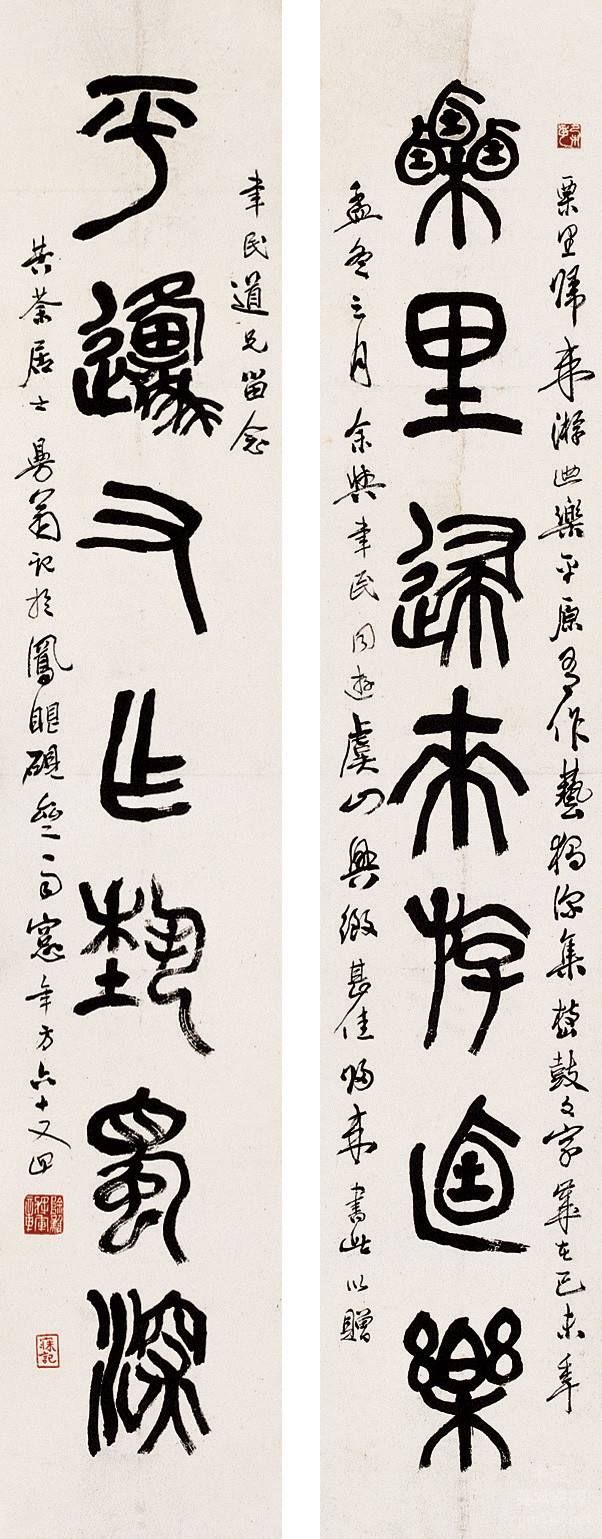 栗里歸來游逌樂平原有作藝獨深集石鼓文字歲在己未年
栗里歸來游逌樂
孟冬之月余與聿民同遊虞山興致甚佳歸來書此以贈
聿民道兄留念
平邍又乍埶蜀深
苦茶居士曼翁記於鳳眼硯齋雨窗年方六十又四